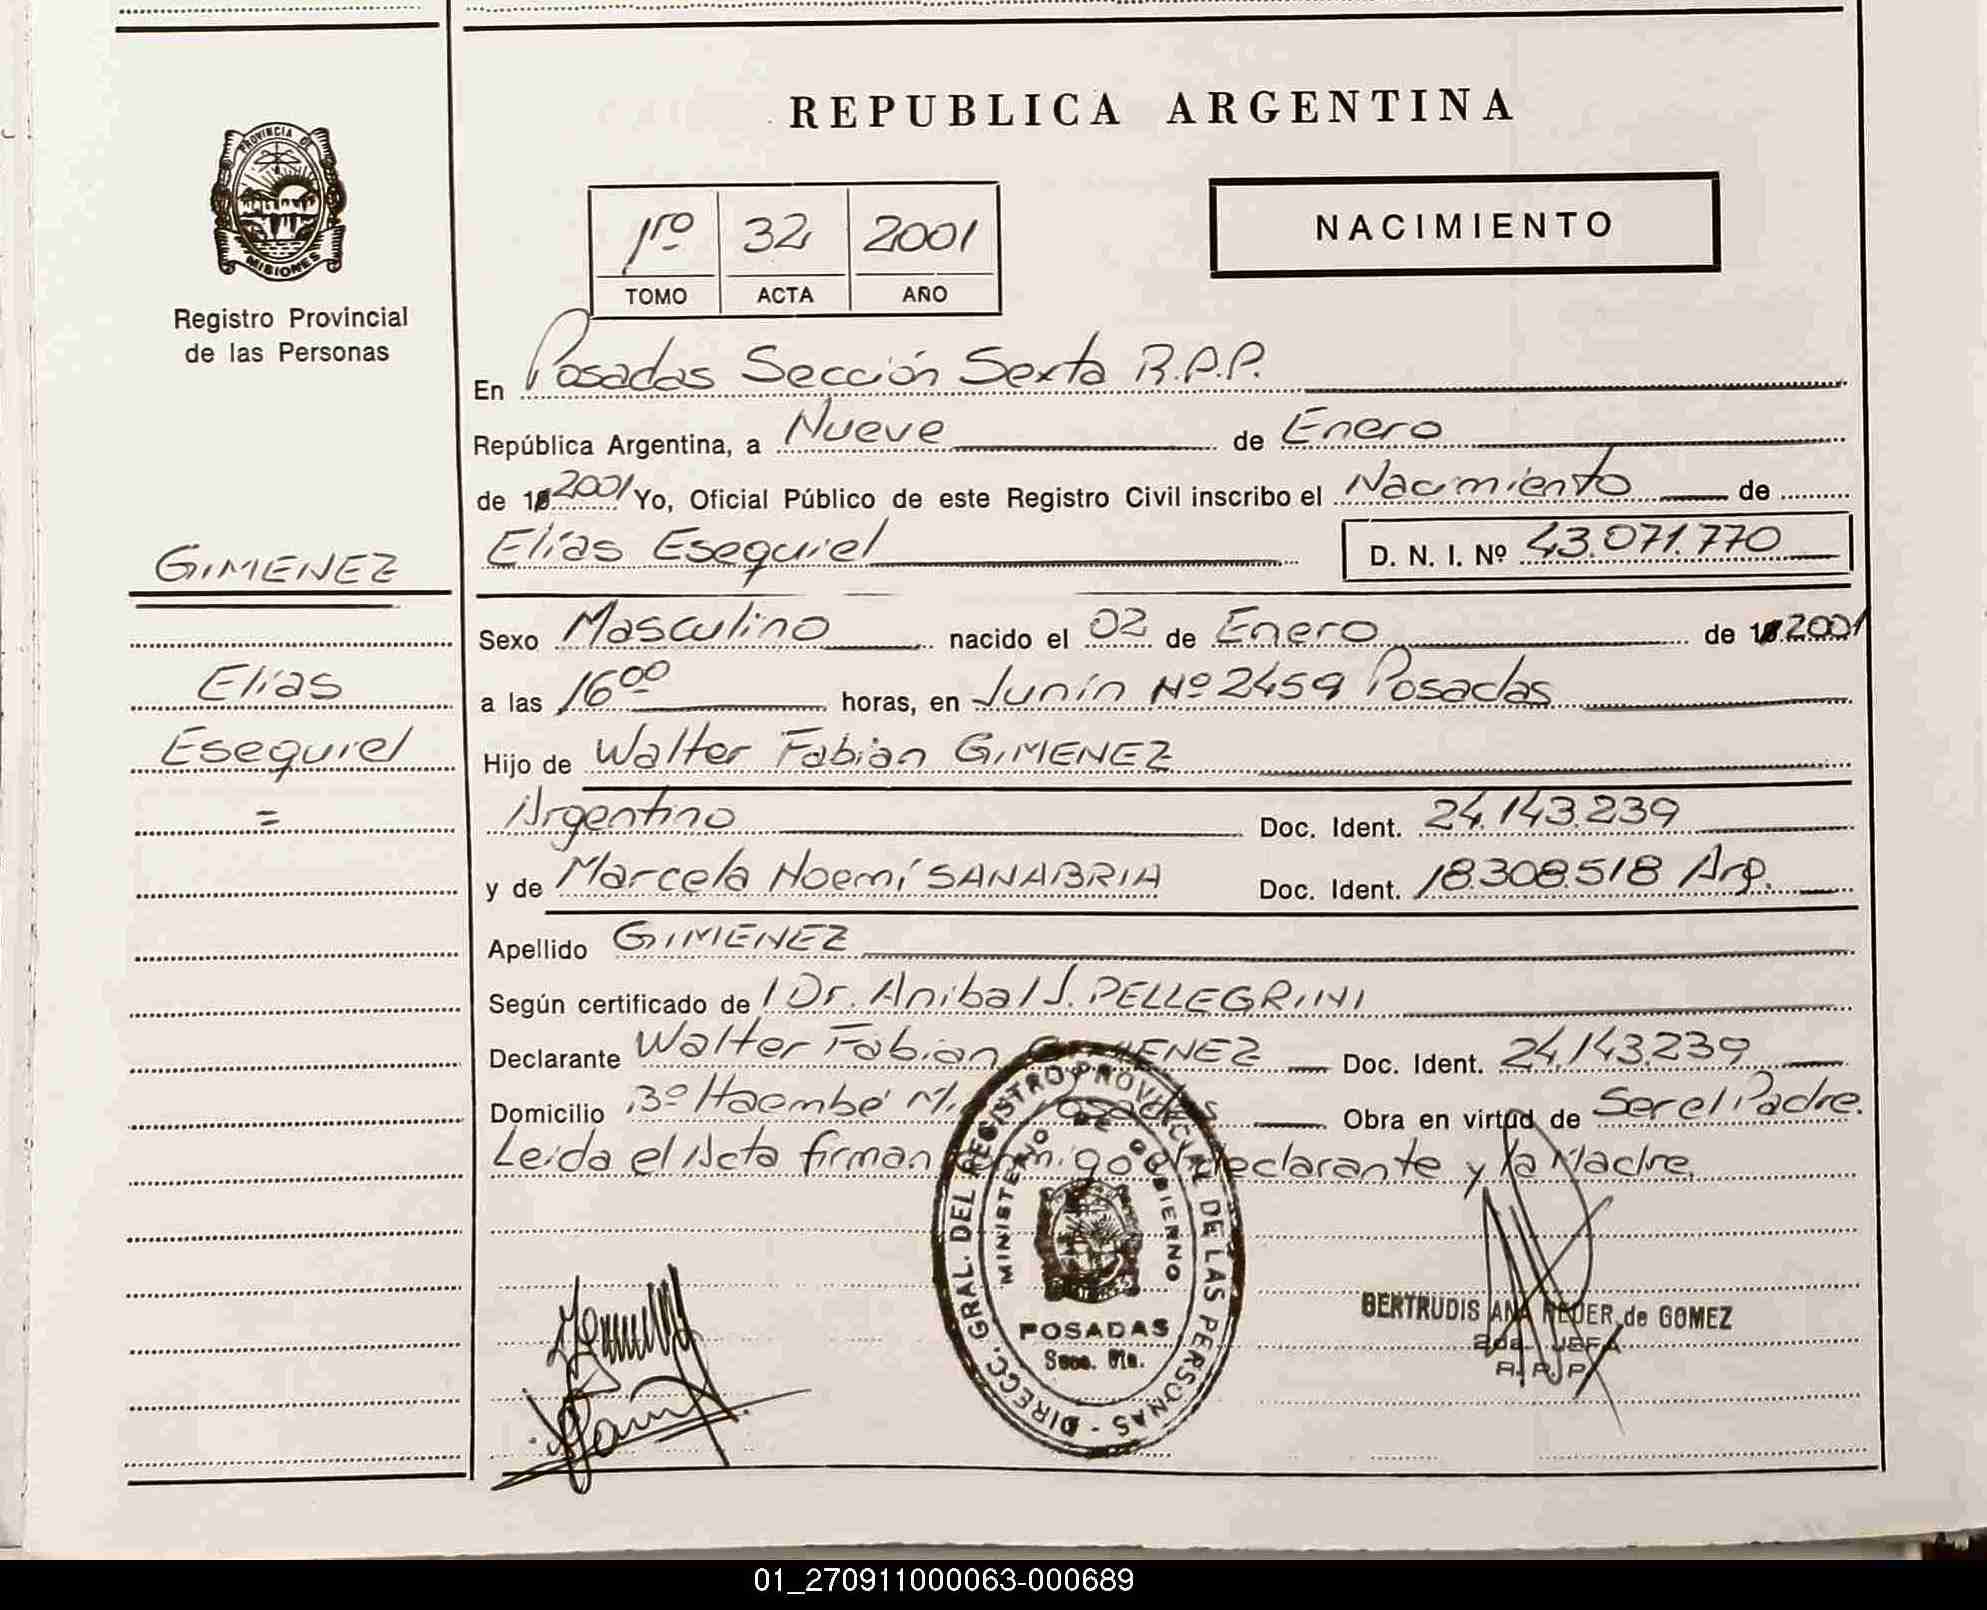 REPUBLICA ARGENTINA
PROVINCIA DE
MISIONES
Registro Provincial
de las Personas
1ro 32 2001
TOMO ACTA AÑO
NACIMIENTO
En Posadas Sección Sexta R.P.P.
República Argentina, a Nueve de Enero
de 2001 Yo, Oficial Público de este Registro Civil inscribo el Nacimiento de
GIMENEZ
Elías Esequiel D. N. I. Nº 43.071.770
Sexo Masculino nacido el 02 de Enero de 2001
Elías
a las 16 00 horas, en Junín Nº 2459 Posadas
Esequiel
Hijo de Walter Fabian GIMENEZ
=
Argentino Doc. Ident. 24.143.239
y de Marcela Noemí SANABRIA Doc. Ident. 18.308.518 Arg.
Apellido GIMENEZ
Según certificado de Dr. Anibal J. PELLEGRINI
Declarante Walter Fabian GIMENEZ Doc. Ident. 24.143.239
Domicilio Bº Haembé Posadas Obra en virtud de Ser el Padre.
Leída el Acta firman conmigo el declarante y la Madre.
DIRECC. GRAL. DEL REGISTRO PROVINCIAL DE LAS PERSONAS -
MINISTERIO DE GOBIERNO
POSADAS
Secc. 6ta.
BERTRUDIS ANA de GOMEZ
2da. JEFA
R.P.P.
01_270911000063-000689